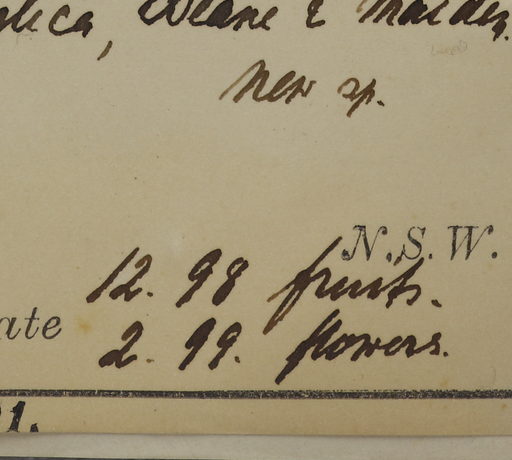 Deane & Maiden.
New sp.
N.S.W.
12. 98 fruits.
ate 2. 99. flowers.
1.